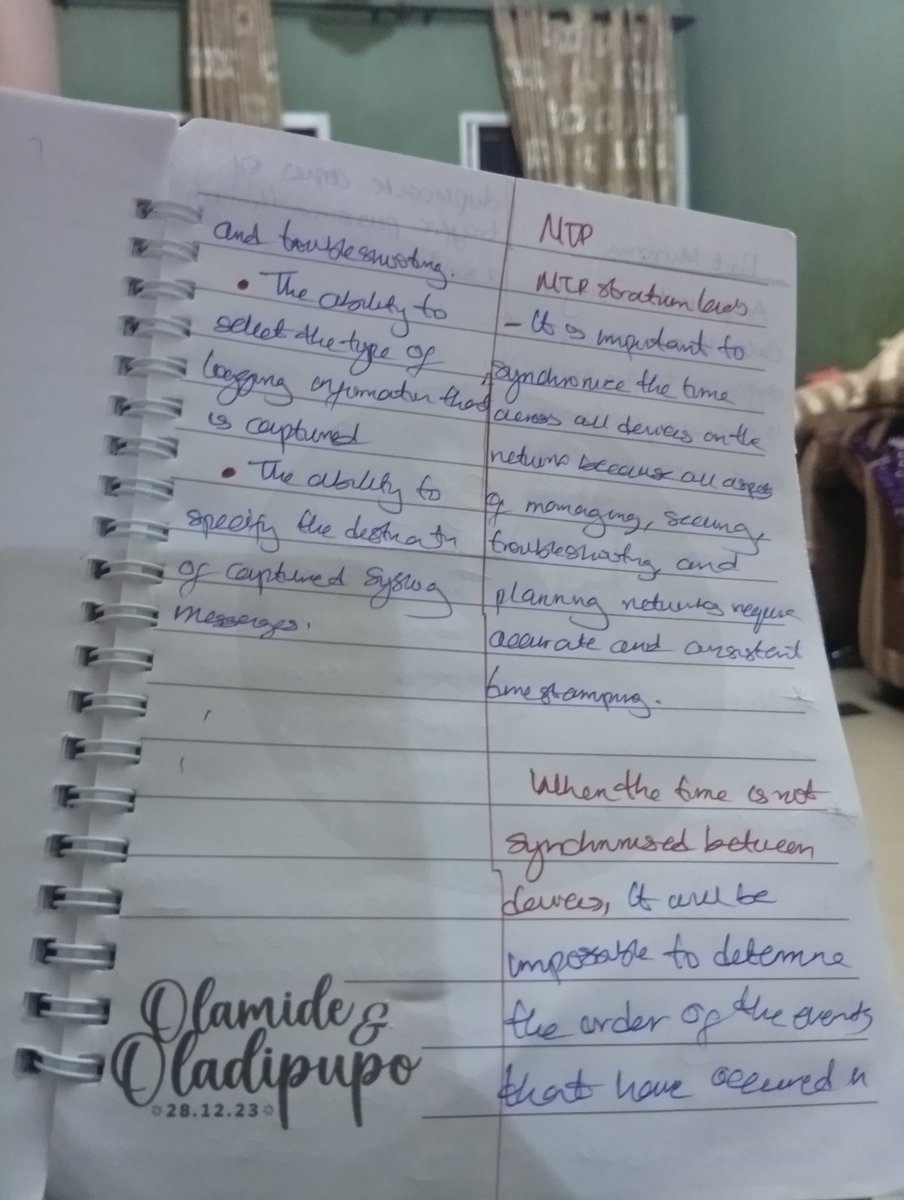 and troubleshooting.
• The ability to
select the type of
logging information that
is captured
• The ability to
specify the destination
of captured syslog
messages.
Olamide &
Oladipupo
28.12.23
NTP
NTP stratum levels
- It is important to
synchronize the time
across all devices on the
network because all aspects
of managing, securing,
troubleshooting, and
planning networks require
accurate and consistent
timestamping.
When the time is not
synchronised between
devices, it will be
impossible to determine
the order of the events
that have occured in